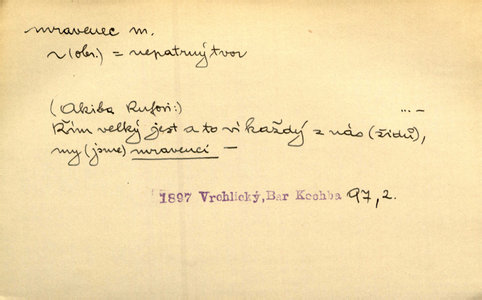 mravenec m.
~ (obr.) = nepatrný tvor
(Akiba Rufovi:) ... —
Řím velký jest a to ví každý z nás (židů),
my (jsme) mravenci —
1897 Vrchlický, Bar Kochba 97, 2.